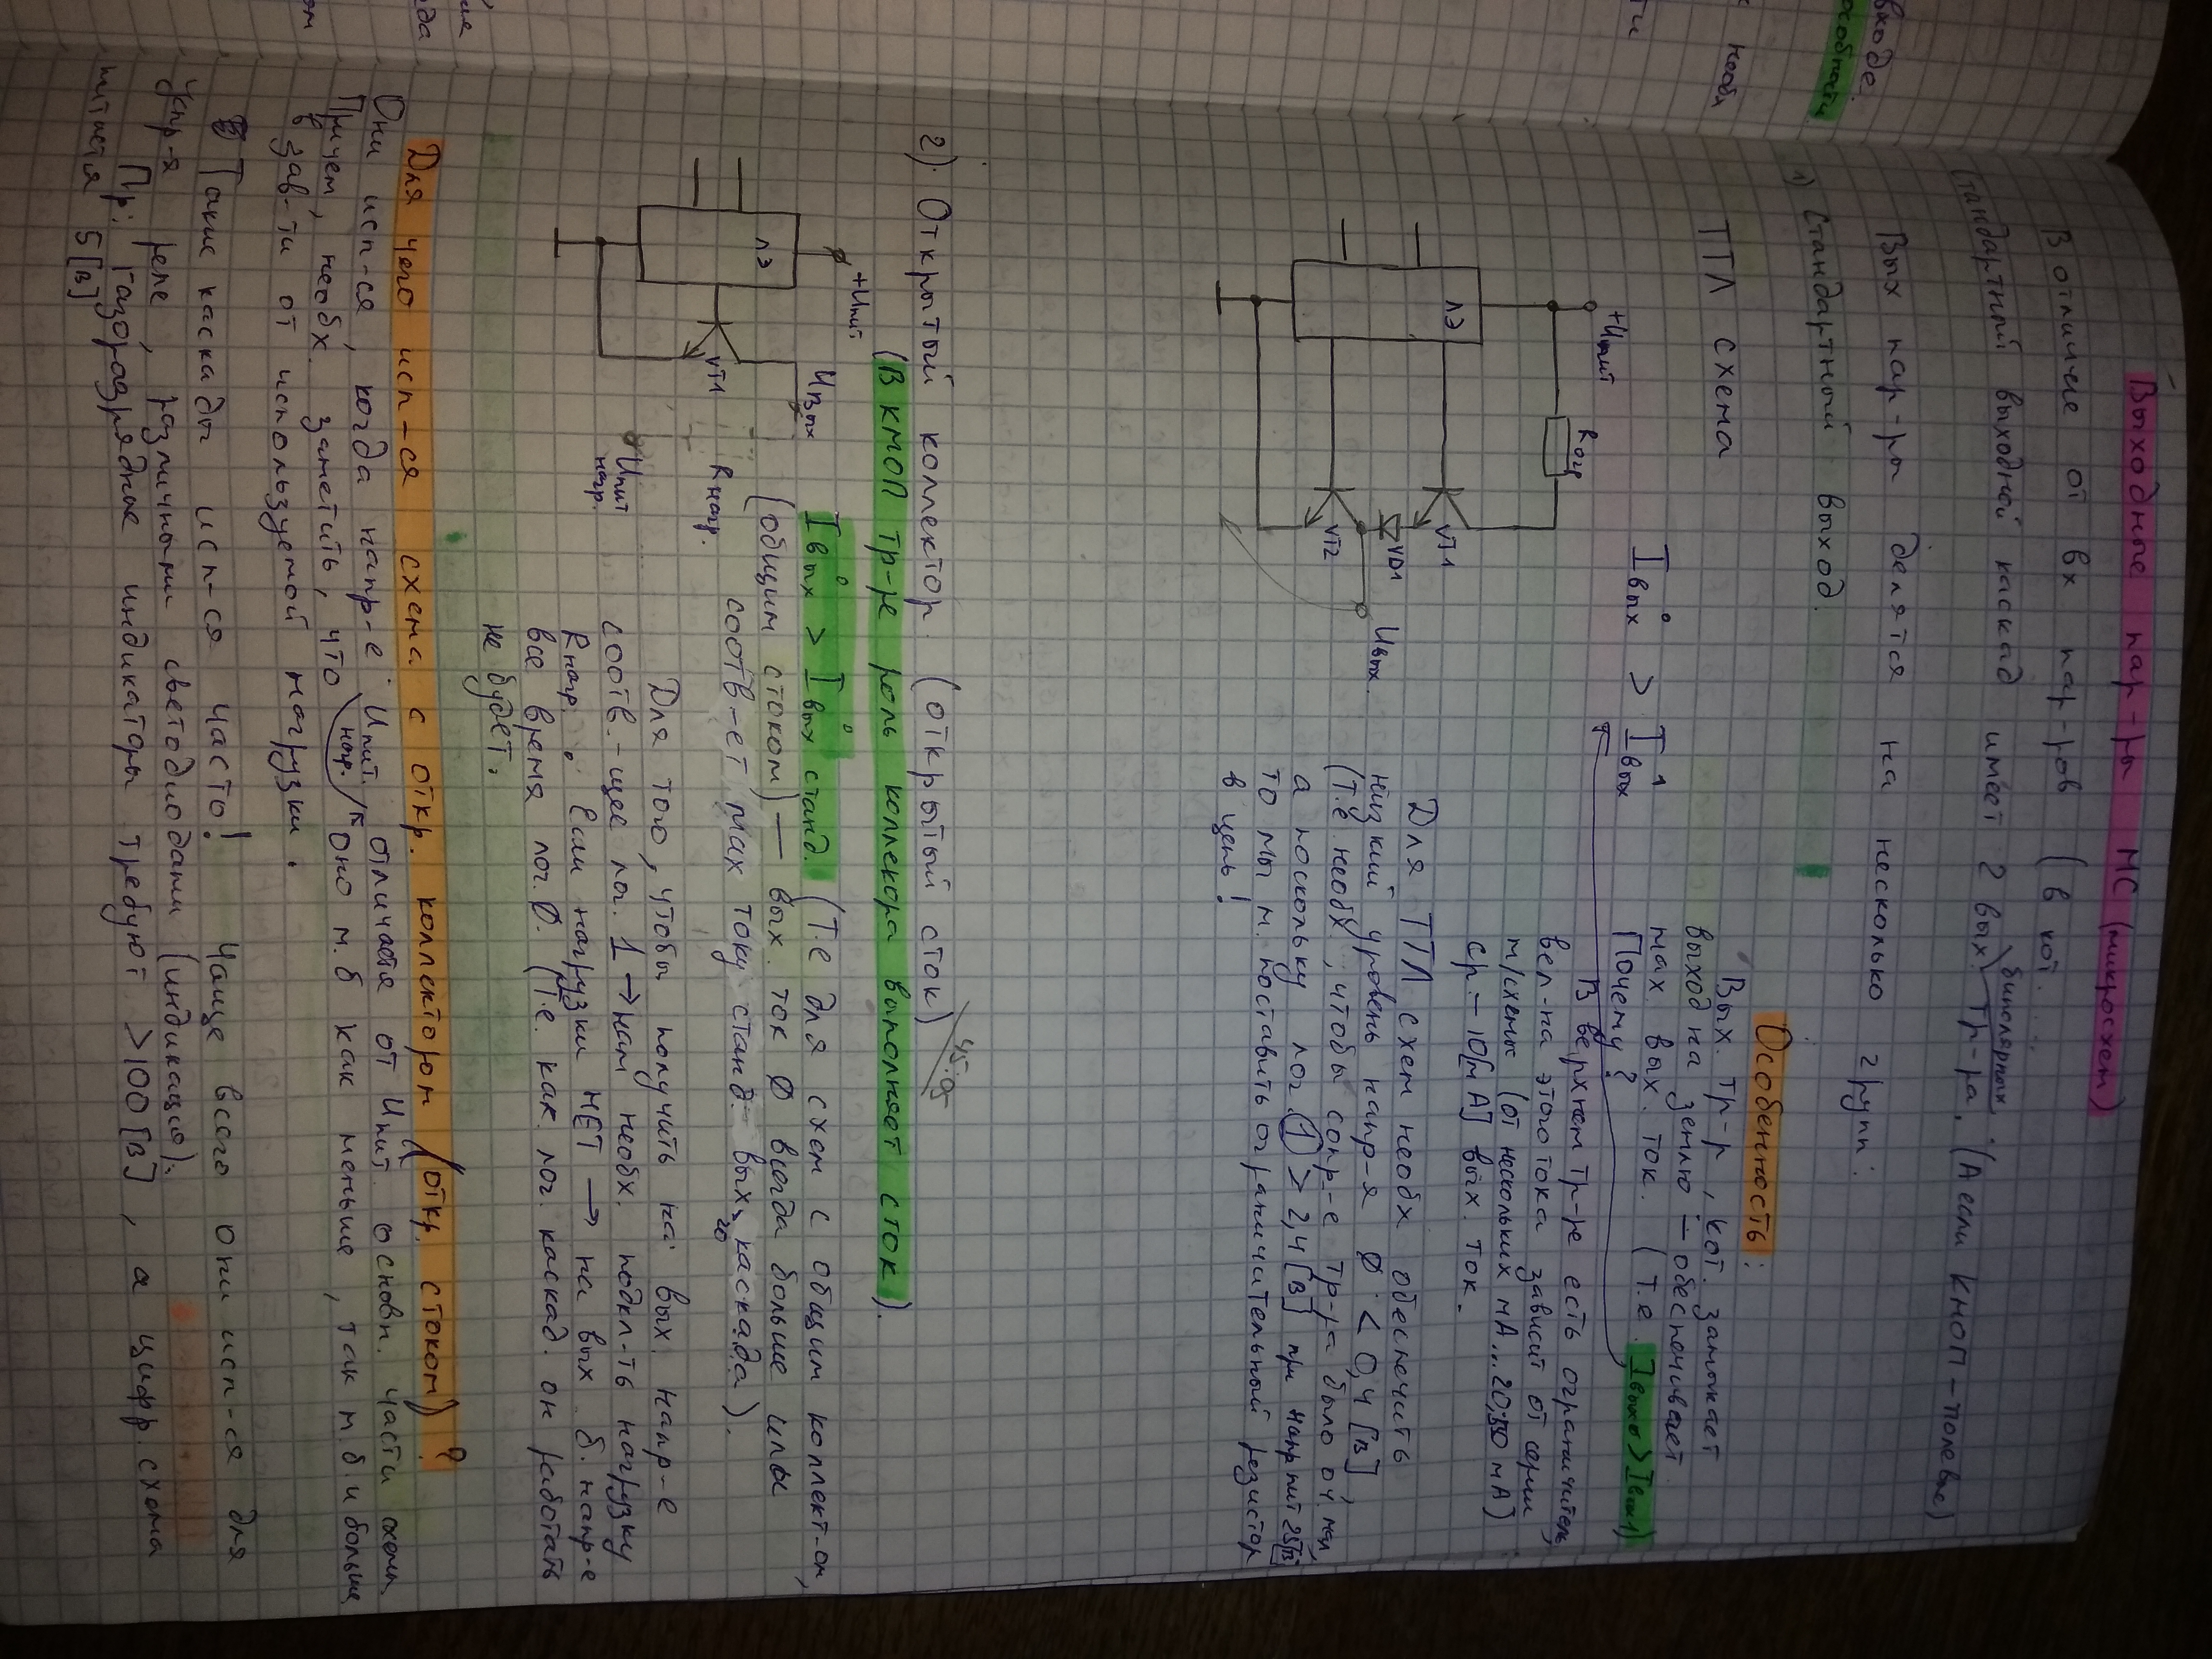 Выходные пар-ры МС (микросхем)
В отличие от вх пар-ров (в кот.
стандартный выходной каскад имеет 2 вых биполярных тр-ра. (А если КМОП-полевые)
Вых пар-ры делятся на несколько групп:
1) Стандартный выход.
ТТЛ схема
+Uпит
Rогр
ЛЭ
VT1
VD1
VT2
Uвых.
I⁰вых > I¹вых
Особенность:
Вых. тр-р, кот. замыкает
выход на землю – обеспечивает
max вых. ток. (т.е. Iвых0 > Iвых1)
Почему?
В верхнем тр-ре есть ограничитель,
вел-на этого тока зависит от серии
м/схемы (от нескольких мА...20;50 мА)
ср. – 10[мА] вых. ток.
Для ТТЛ схем необх обеспечить
низкий уровень напр-я 0 < 0,4 [В]
(т.е необх, чтобы сопр-е тр-ра было оч. мал,
а поскольку лог. 1 > 2,4 [В] при напр пит
то мы м. поставить ограничительный резистор
в цепь!
2). Открытый коллектор. (открытый сток)
(В КМОП тр-ре роль коллекора выполняет сток).
+Uпит
ЛЭ
VT1
Uвых
Rнагр.
Uпит
нагр.
I⁰вых > I⁰вых станд. (Т.е для схем с общим коллект-ом,
(общим стоком) – вых. ток 0 всегда больше или
соотв-ет max току станд. вых-го каскада).
Для того, чтобы получить на вых. напр-е
соотв.-щее лог. 1 → нам необх. подкл-ть нагрузку
Rнагр. Если нагрузки НЕТ → на вых б. напр-е
все время лог. 0. (Т.е. как лог. каскад он работать
не будет.
Для чего исп-ся схема с откр. коллектором (откр. стоком)?
Они исп-ся, когда напр-е Uпит. нагр. отличается от Uпит. основн. части схемы.
Причем, необх. заметить, что оно м.б как меньше, так м.б и больше
в зав-ти от используемой нагрузки.
Такие каскады исп-ся часто! Чаще всего они исп-ся для
упр-я реле, различными светодиодами (индикацию).
Пр: газоразрядные индикаторы требуют >100 [В], а цифр. схема
питается 5 [В]
выходе.
особности
необх